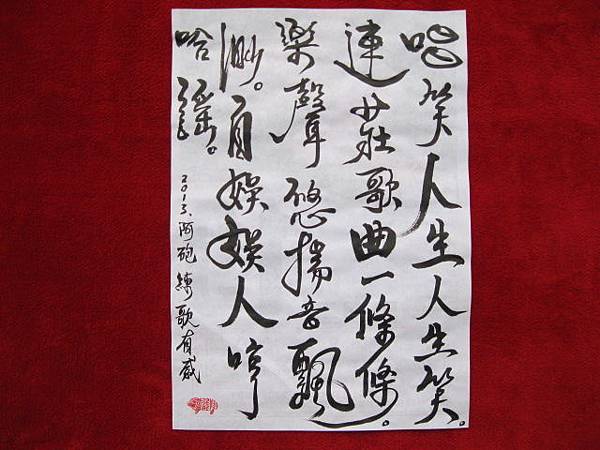 唱笑人生人生笑。
連莊歌曲一條條。
樂聲悠揚音飄
渺。自娛娛人哼
哈謠。
2013、阿砲練歌有感